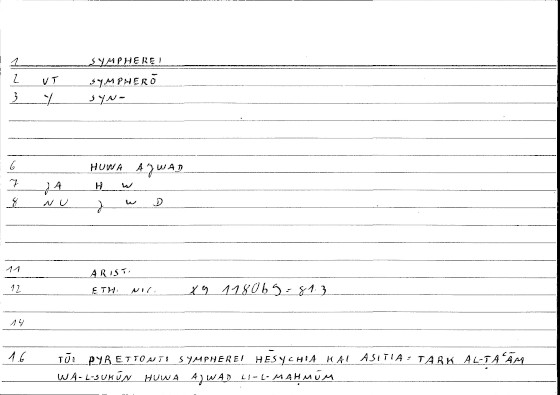 1 SYMPHEREI
2 VT SYMPHERŌ
3 Y SYN-
6 HUWA AJWAD
7 JA H W
8 NU J W D
11 ARIST.
12 ETH. NIC. X9 1180b9 = 813
14
16 TŌI PYRETTONTI SYMPHEREI HĒSYCHIA KAI ASITIA = TARK AL-ṬAʿĀM
WA-L-SUKŪN HUWA AJWAD LI-L-MAḤMŪM